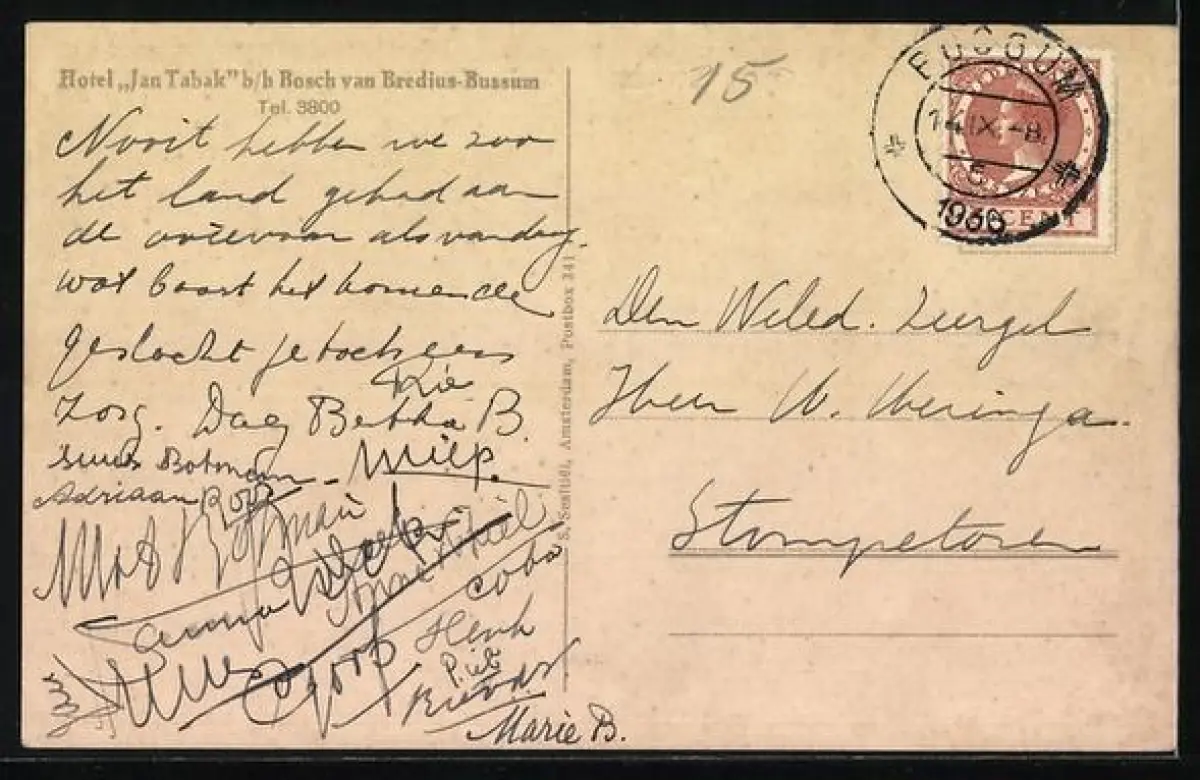 Hotel „Jan Tabak" b/h Bosch van Bredius-Bussum
Tel. 3800
Nooit hebben we zoo
het land gehad aan
de ooievaar als vandaag.
wat baart het komende
geslacht je toch een
zorg. Dag Bertha B.
Rie
Miep.
Adriaan
Anna
Coba
Joop
Henk
Piet
Marie B.
S. Santisei, Amsterdam, Postbox 341
15
BUSSUM
14.IX.-8.
5
1936
CENT
Den Weled. Zeergel
Heer W. Weringa.
Stompetoren